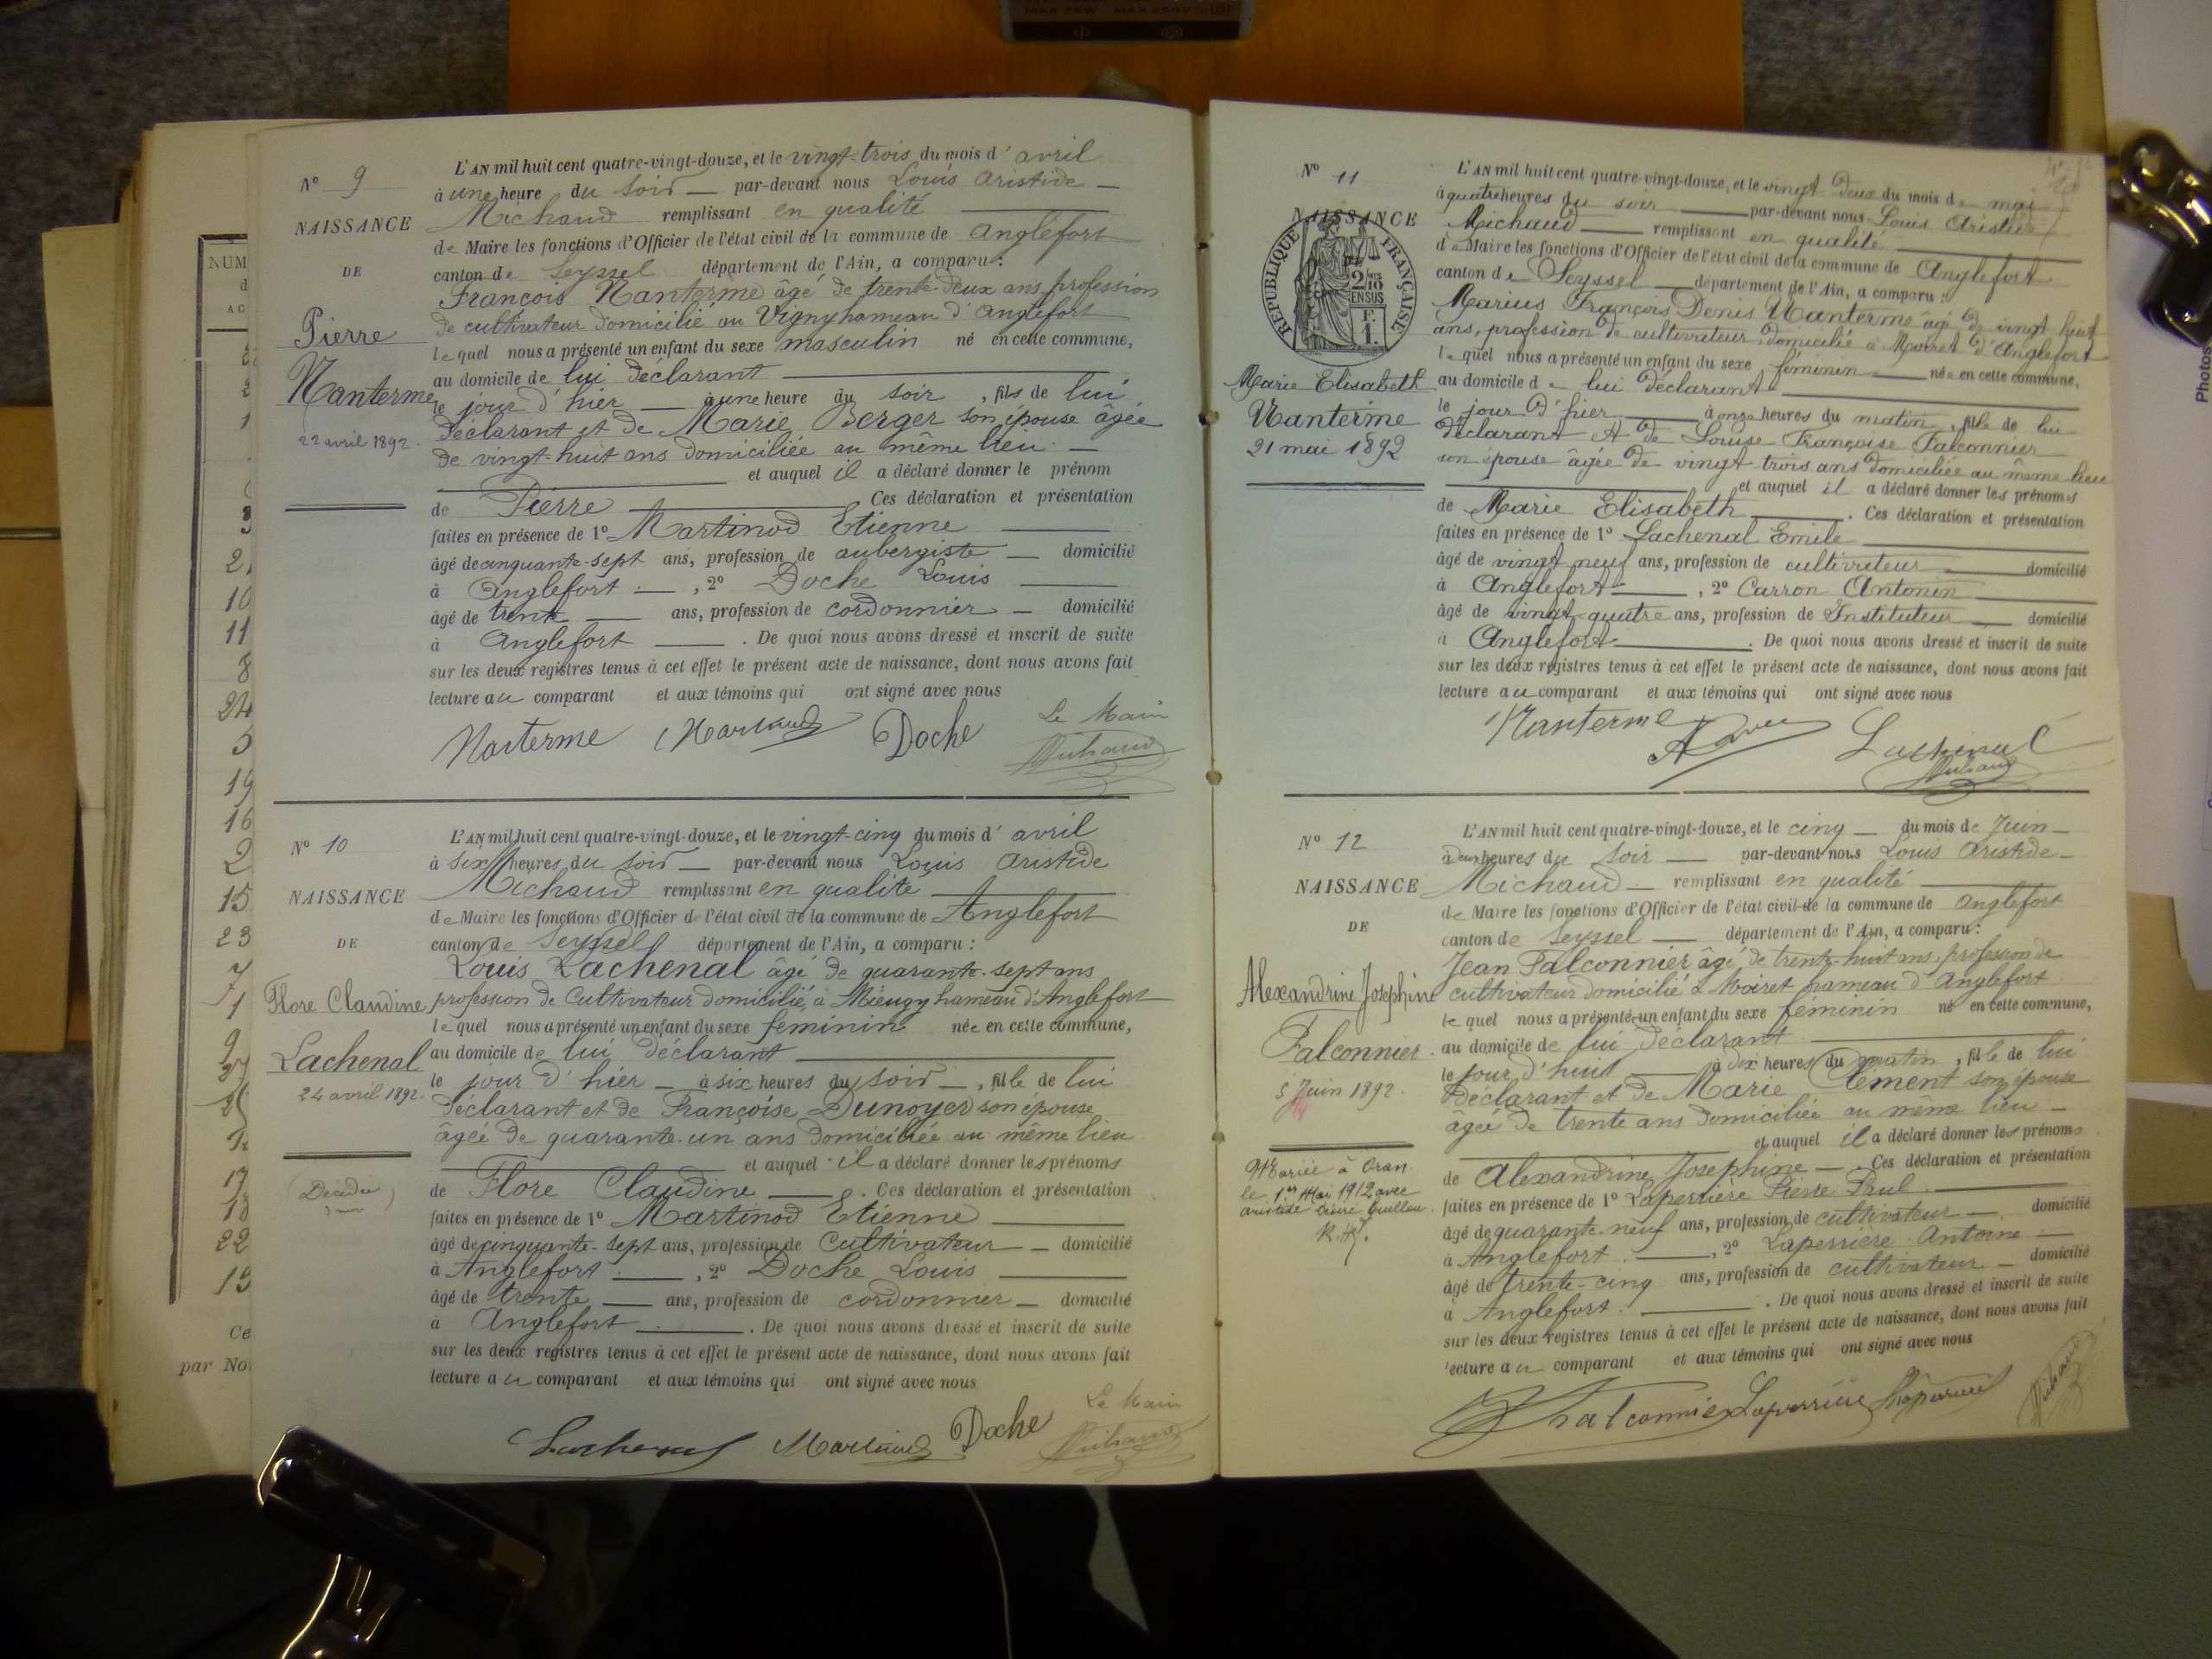 N° 9
NAISSANCE
DE
Pierre
Nanterme
22 avril 1892.
L'AN mil huit cent quatre-vingt-douze, et le vingt-trois du mois d'avril
à une heure du soir par-devant nous Louis Aristide
Michaud remplissant en qualité
de Maire les fonctions d'Officier de l'état civil de la commune de Anglefort
canton de Seyssel département de l'Ain, a comparu :
François Nanterme âgé de trente-deux ans, profession
de cultivateur domicilié au Vigny hameau d'Anglefort
lequel nous a présenté un enfant du sexe masculin né en cette commune,
au domicile de lui déclarant
le jour d'hier à une heure du soir, fils de lui
déclarant et de Marie Berger son épouse âgée
de vingt-huit ans domiciliée au même lieu
et auquel il a déclaré donner le prénom
de Pierre Ces déclaration et présentation
faites en présence de 1° Martinod Etienne
âgé de cinquante-sept ans, profession de aubergiste domicilié
à Anglefort, 2° Doche Louis
âgé de trente ans, profession de cordonnier domicilié
à Anglefort. De quoi nous avons dressé et inscrit de suite
sur les deux registres tenus à cet effet le présent acte de naissance, dont nous avons fait
lecture au comparant et aux témoins qui ont signé avec nous
Le Maire
Nanterme Martinod Doche Michaud
N° 10
NAISSANCE
DE
Flore Claudine
Lachenal
24 avril 1892.
(Décédée)
L'AN mil huit cent quatre-vingt-douze, et le vingt-cinq du mois d'avril
à six heures du soir par-devant nous Louis Aristide
Michaud remplissant en qualité
de Maire les fonctions d'Officier de l'état civil de la commune de Anglefort
canton de Seyssel département de l'Ain, a comparu :
Louis Lachenal âgé de quarante-sept ans
profession de Cultivateur domicilié à Mieugy hameau d'Anglefort
lequel nous a présenté un enfant du sexe féminin née en cette commune,
au domicile de lui déclarant
le jour d'hier à six heures du soir, fille de lui
déclarant et de Françoise Dunoyer son épouse
âgée de quarante-un ans domiciliée au même lieu
et auquel il a déclaré donner les prénoms
de Flore Claudine. Ces déclaration et présentation
faites en présence de 1° Martinod Etienne
âgé de cinquante-sept ans, profession de Cultivateur domicilié
à Anglefort, 2° Doche Louis
âgé de trente ans, profession de cordonnier domicilié
à Anglefort. De quoi nous avons dressé et inscrit de suite
sur les deux registres tenus à cet effet le présent acte de naissance, dont nous avons fait
lecture au comparant et aux témoins qui ont signé avec nous
Le Maire
Lachenal Martinod Doche Michaud
N° 11
NAISSANCE
RÉPUBLIQUE FRANÇAISE
2/10 EN SUS
F. 1.
Marie Elisabeth
Nanterme
21 mai 1892
L'AN mil huit cent quatre-vingt-douze, et le vingt-deux du mois de mai
à quatre heures du soir par-devant nous Louis Aristide
Michaud remplissant en qualité
de Maire les fonctions d'Officier de l'état civil de la commune de Anglefort
canton de Seyssel département de l'Ain, a comparu :
Marius François Denis Nanterme âgé de vingt huit
ans, profession de cultivateur domicilié à Moiret d'Anglefort
lequel nous a présenté un enfant du sexe féminin née en cette commune,
au domicile de lui déclarant
le jour d'hier à onze heures du matin, fille de lui
déclarant et de Louise Françoise Falconnier
son épouse âgée de vingt trois ans domiciliée au même lieu
et auquel il a déclaré donner les prénoms
de Marie Elisabeth. Ces déclaration et présentation
faites en présence de 1° Lachenal Emile
âgé de vingt neuf ans, profession de cultivateur domicilié
à Anglefort, 2° Carron Antonin
âgé de vingt-quatre ans, profession de Instituteur domicilié
à Anglefort. De quoi nous avons dressé et inscrit de suite
sur les deux registres tenus à cet effet le présent acte de naissance, dont nous avons fait
lecture au comparant et aux témoins qui ont signé avec nous
Nanterme Lachenal
Michaud
N° 12
NAISSANCE
DE
Alexandrine Josephine
Falconnier
5 Juin 1892.
Mariée à Oran
le 1er Mai 1912 avec
Aristide
L'AN mil huit cent quatre-vingt-douze, et le cinq du mois de Juin
à deux heures du soir par-devant nous Louis Aristide
Michaud remplissant en qualité
de Maire les fonctions d'Officier de l'état civil de la commune de Anglefort
canton de Seyssel département de l'Ain, a comparu :
Jean Falconnier âgé de trente-huit ans, profession de
cultivateur domicilié à Moiret hameau d'Anglefort
lequel nous a présenté un enfant du sexe féminin né en cette commune,
au domicile de lui déclarant
le jour d'hui à dix heures du matin, fille de lui
déclarant et de Marie Clément son épouse
âgée de trente ans domiciliée au même lieu
et auquel il a déclaré donner les prénoms
de Alexandrine Josephine. Ces déclaration et présentation
faites en présence de 1° Laperrière Pierre Paul
âgé de quarante-neuf ans, profession de cultivateur domicilié
à Anglefort, 2° Laperrière Antoine
âgé de trente-cinq ans, profession de cultivateur domicilié
à Anglefort. De quoi nous avons dressé et inscrit de suite
sur les deux registres tenus à cet effet le présent acte de naissance, dont nous avons fait
lecture au comparant et aux témoins qui ont signé avec nous
Falconnier Laperrière Laperrière Michaud